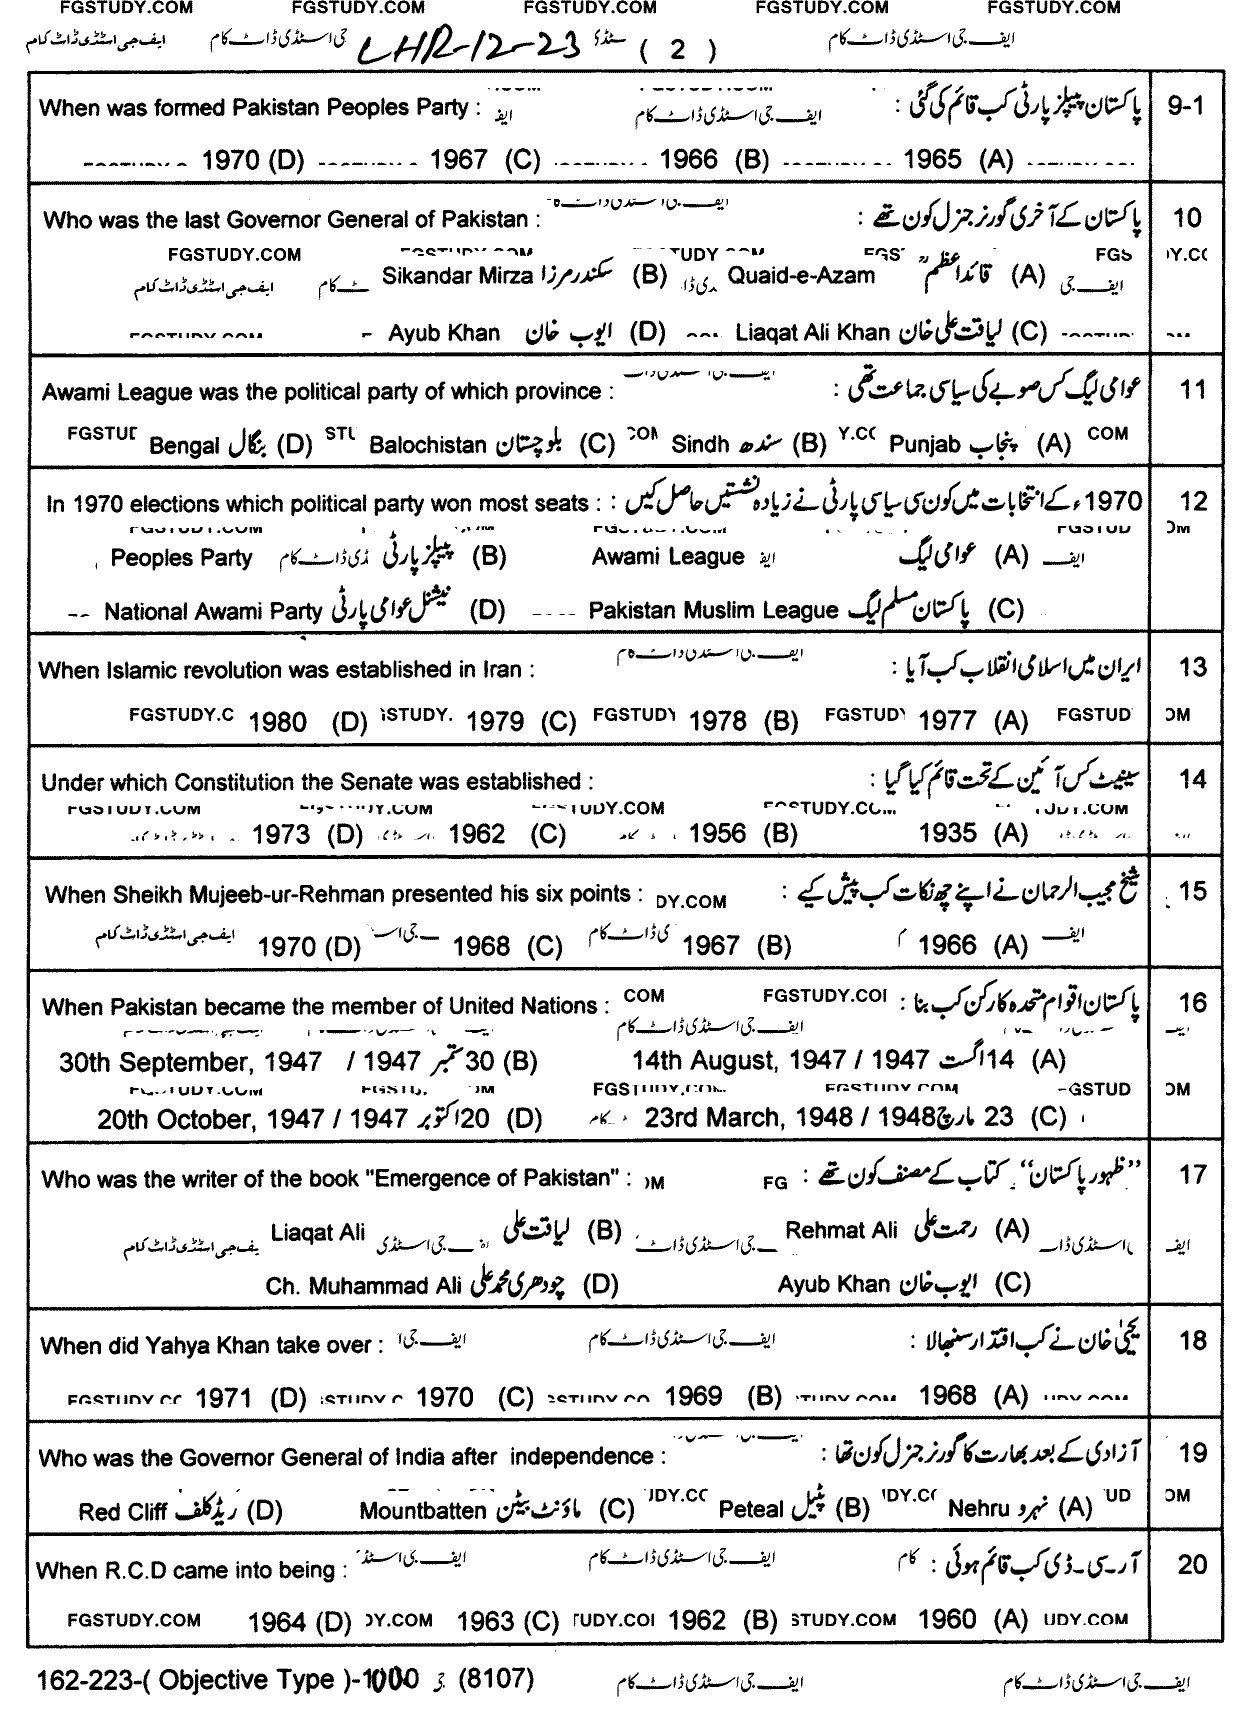 FGSTUDY.COM FGSTUDY.COM FGSTUDY.COM FGSTUDY.COM FGSTUDY.COM
ایف جی اسٹڈی ڈاٹ کام جی اسٹڈی ڈاٹ کام LHR-12-23 سٹڈی ( 2 ) ایف جی اسٹڈی ڈاٹ کام
When was formed Pakistan Peoples Party : ایف ایف جی اسٹڈی ڈاٹ کام پاکستان پیپلز پارٹی کب قائم کی گئی : 9-1
1970 (D) 1967 (C) 1966 (B) 1965 (A)
Who was the last Governor General of Pakistan : پاکستان کے آخری گورنر جنرل کون تھے : 10
FGSTUDY.COM
Sikandar Mirza سکندر مرزا (B) Quaid-e-Azam قائداعظمؒ (A)
ایف جی اسٹڈی ڈاٹ کام
Ayub Khan ایوب خان (D) Liaqat Ali Khan لیاقت علی خان (C)
Awami League was the political party of which province : عوامی لیگ کس صوبے کی سیاسی جماعت تھی : 11
Bengal بنگال (D) Balochistan بلوچستان (C) Sindh سندھ (B) Punjab پنجاب (A) COM
In 1970 elections which political party won most seats : 1970ء کے انتخابات میں کون سی سیاسی پارٹی نے زیادہ نشستیں حاصل کیں : 12
Peoples Party پیپلز پارٹی (B) Awami League عوامی لیگ (A)
National Awami Party نیشنل عوامی پارٹی (D) Pakistan Muslim League پاکستان مسلم لیگ (C)
When Islamic revolution was established in Iran : ایران میں اسلامی انقلاب کب آیا : 13
FGSTUDY.C 1980 (D) STUDY. 1979 (C) FGSTUDY 1978 (B) FGSTUDY 1977 (A) FGSTUD OM
Under which Constitution the Senate was established : سینیٹ کس آئین کے تحت قائم کیا گیا : 14
1973 (D) 1962 (C) 1956 (B) 1935 (A)
When Sheikh Mujeeb-ur-Rehman presented his six points : DY.COM شیخ مجیب الرحمان نے اپنے چھ نکات کب پیش کیے : 15
ایف جی اسٹڈی ڈاٹ کام 1970 (D) 1968 (C) 1967 (B) 1966 (A) ایف
When Pakistan became the member of United Nations : COM پاکستان اقوام متحدہ کا رکن کب بنا : 16
30th September, 1947 / 1947 ستمبر 30 (B) 14th August, 1947 / 1947 اگست 14 (A)
20th October, 1947 / 1947 اکتوبر 20 (D) 23rd March, 1948 / 1948 مارچ 23 (C)
Who was the writer of the book "Emergence of Pakistan" : OM FG "ظہور پاکستان" کتاب کے مصنف کون تھے : 17
Liaqat Ali لیاقت علی (B) Rehmat Ali رحمت علی (A)
Ch. Muhammad Ali چودھری محمد علی (D) Ayub Khan ایوب خان (C)
When did Yahya Khan take over : ایف جی ا ایف جی اسٹڈی ڈاٹ کام یحییٰ خان نے کب اقتدار سنبھالا : 18
1971 (D) 1970 (C) 1969 (B) 1968 (A)
Who was the Governor General of India after independence : آزادی کے بعد بھارت کا گورنر جنرل کون تھا : 19
Red Cliff ریڈ کلف (D) Mountbatten ماؤنٹ بیٹن (C) Peteal پٹیل (B) Nehru نہرو (A) UD OM
When R.C.D came into being : ایف جی اسٹڈی ڈاٹ کام کام آر۔سی۔ڈی کب قائم ہوئی : 20
FGSTUDY.COM 1964 (D) DY.COM 1963 (C) 1962 (B) STUDY.COM 1960 (A) UDY.COM
162-223-( Objective Type )-1000 ج (8107) ایف جی اسٹڈی ڈاٹ کام ایف جی اسٹڈی ڈاٹ کام